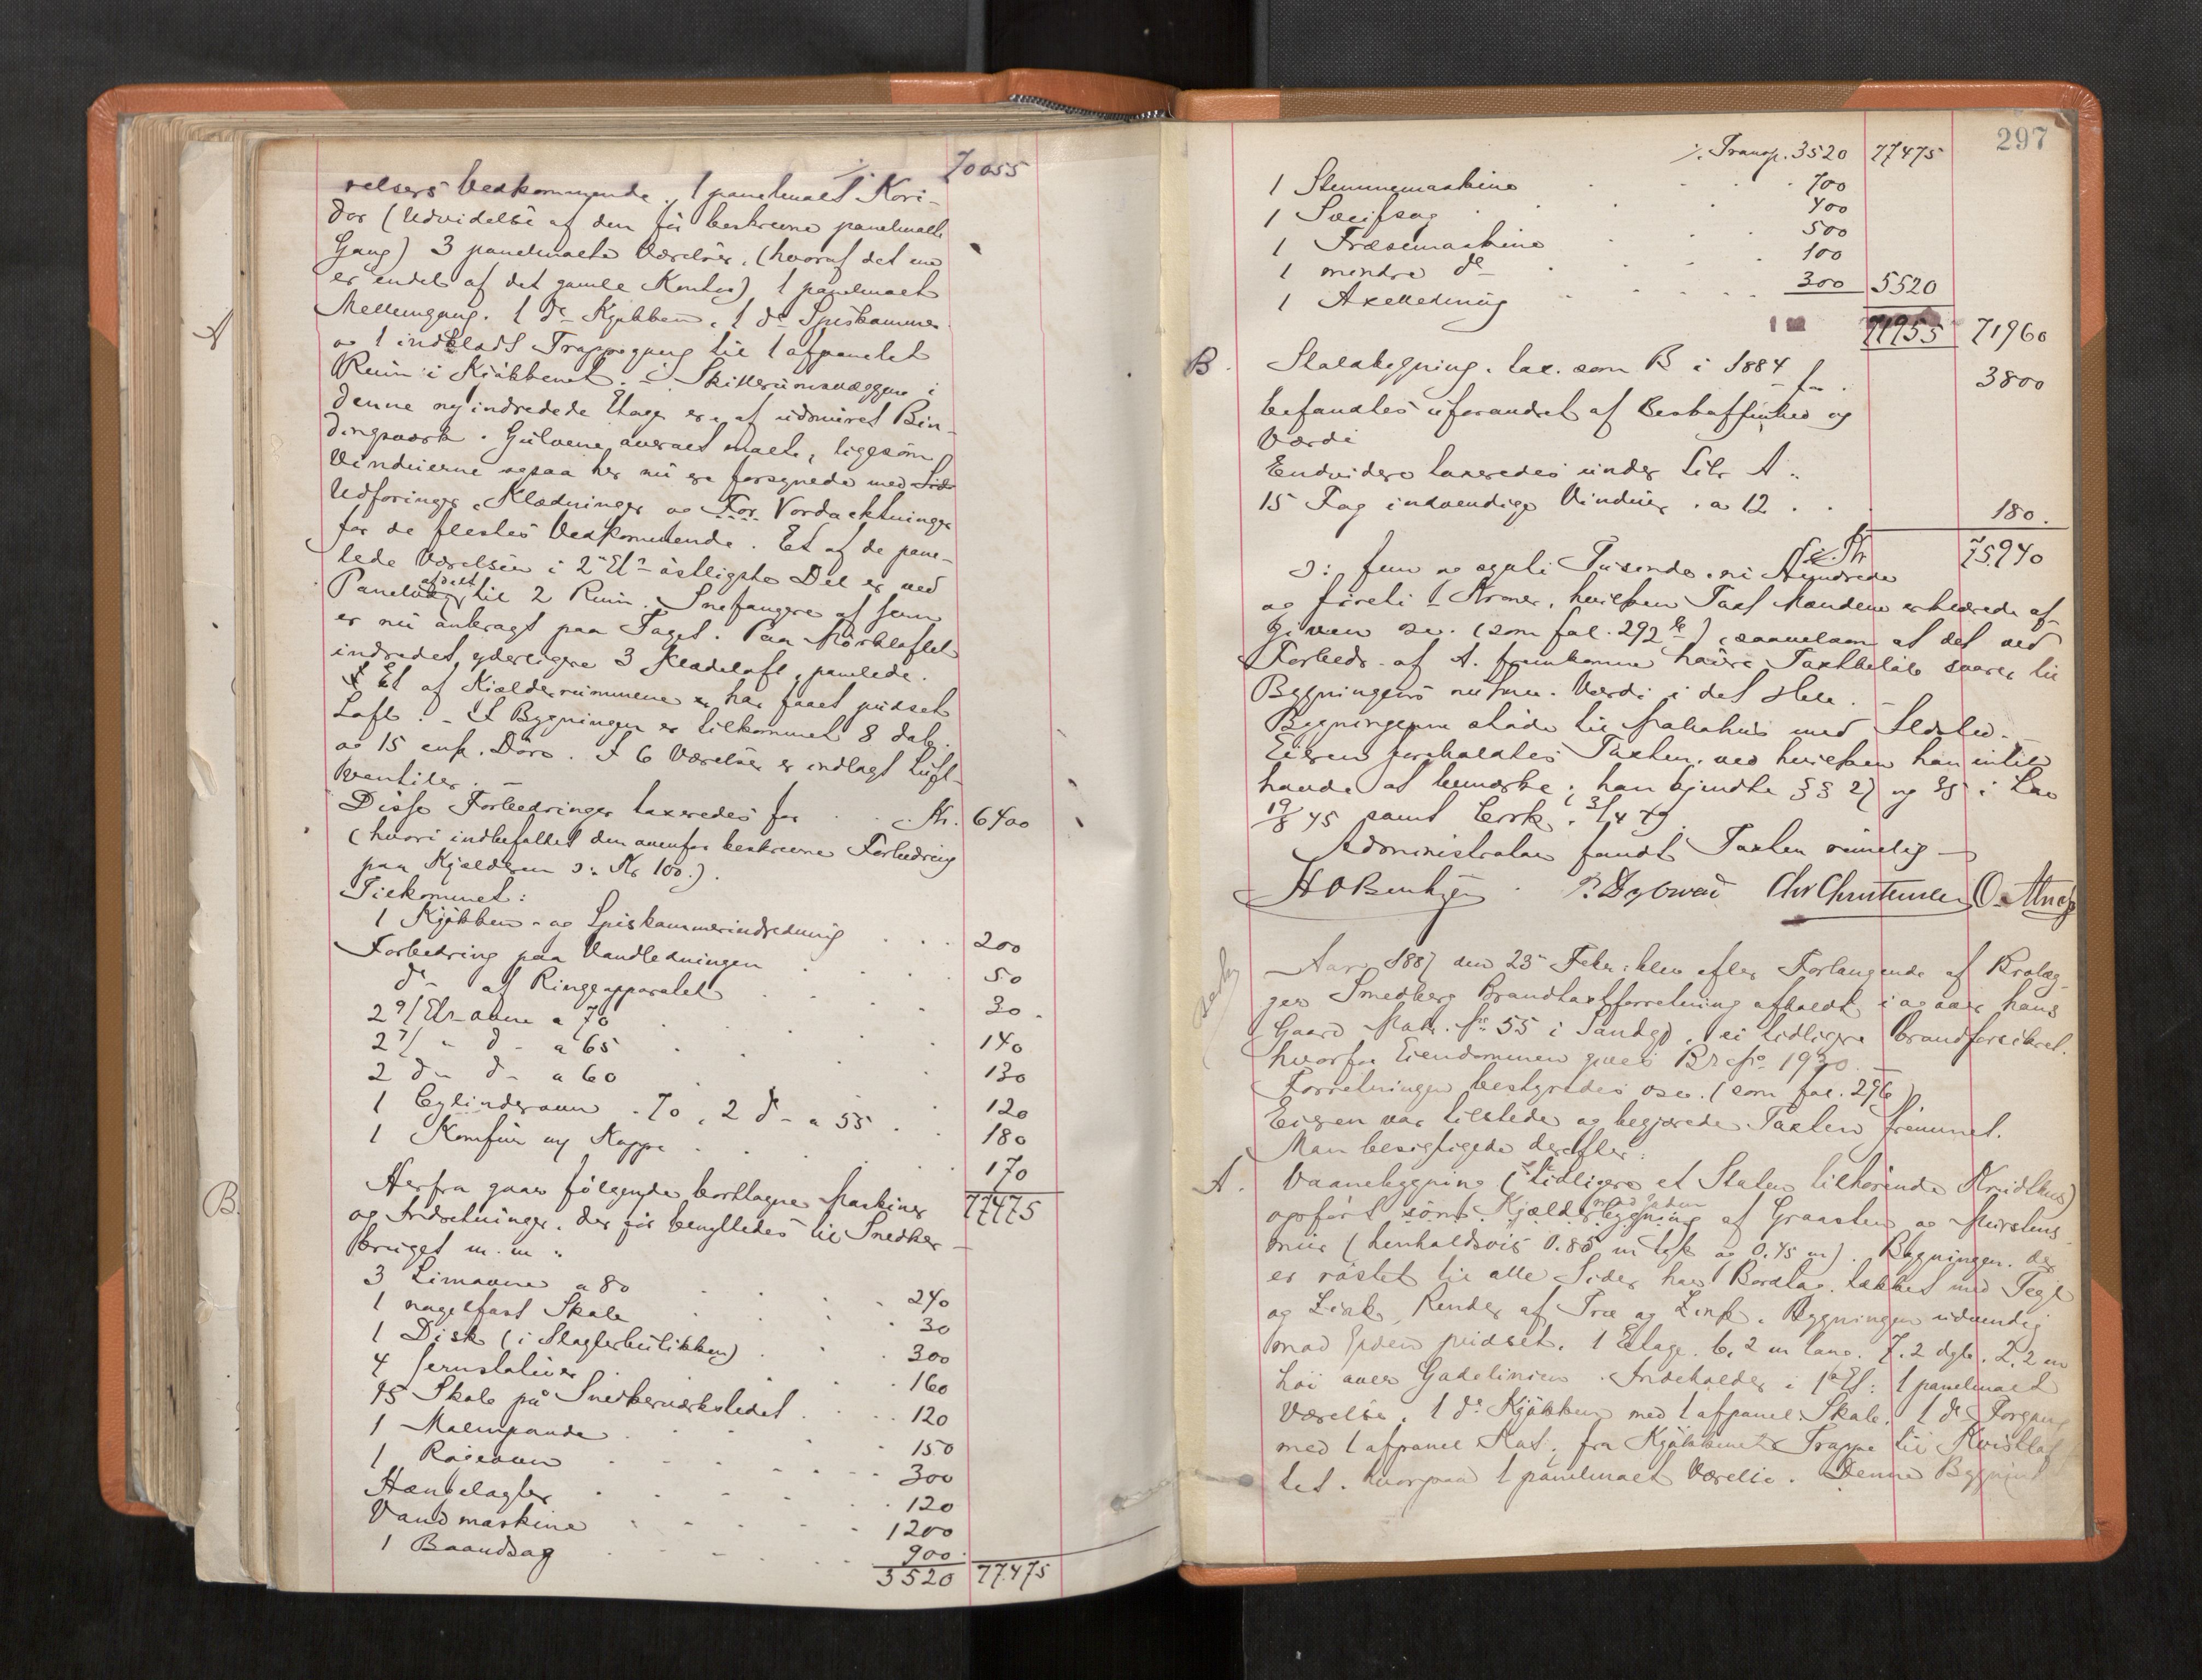 % 70055
relsers Vedkommende. 1 panelmalt Kori-
dor (Udvidelse af den før beskrevne panelmalte
Gang) 3 panelmalte Værelser, (hvoraf det ene
er endel af det gamle Kontor) 1 panelmalt
Mellemgang. 1 do Kjøkken, 1 do Spiskammer
A
og 1 indklædt Trappegang til 1 afpanelet
Rum i Kjøkkenet. - Skillerumsvæggene i
denne nyindredede Etage er af udmuret Bin-
dingsværk. Gulvene overalt malte, ligesom
Vinduerne ogsaa her nu er forsynede med
Udforinger, Klædninger og For Vordachtninger
for de flestes Vedkommende. Et af de pane-
lede Værelser i 2den Et. østligste Del er ved
Panelvæg afdelt til 2 Rum. Snefangere af Jern
er nu anbragt paa Taget. Paa Mørkloftet
indredet yderligere 3 Klædeloft, panelede.
Et af Kjælderrummene har faaet pudset
Loft. - I Bygningen er tilkommet 8 dob.
og 15 enk. Døre. I 6 Værelser er indlagt Luft-
ventiler. -
Disse Forbedringer taxeredes for . . Kr. 6400
(hvori indbefattet den ovenfor beskrevne Forbedring
paa Kjælderen ɔ: Kr. 100.).
Tilkommet:
1 Kjøkken- og Spiskammerindredning . . . 200
Forbedring paa Vandledningen . . . 50
do - af Ringeapparatet . . . 30.
2 9/ Et. ovne a 70 . . . 140
2 7/ " d - a 65 . . . 130
2 d - d - a 60 . . . 120
1 Cylinderovn - 70, 2 d - a 55 . . 180
1 Komfur og Kappe . . . 170
77475
Herfra gaar følgende borttagne Maskiner
og Indretninger, der før benyttedes til Snedker-
B.
bruget m. m.:
3 Limovne a 80 . . . 240
1 nagelfast Skab . . . 30
1 Disk (i Slagterbutikken) . . . 300
4 Jernstativer . . . 160
15 Skab på Snedkerværkstedet . . . 120
1 Malmpande . . . 150
1 Røgeovn . . . 300
Hændelagter . . . 120
Vandmaskine . . . 1200
1 Baandsag . . . 900.
3520 77475
297
% Transp. 3520 77475
1 Stemmemaskine . . . 700
1 Sveifsag . . . 400
1 Fræsemaskine . . . 500
1 mindre do - . . . 100
1 Axelledning . . . 300 5520
71955 71960
B. Staldbygning, tax. som B i 1884 for . 3800
befandtes uforandret af Beskaffenhed og
Værdi
Endvidere taxeredes under Litr. A:
15 Fag indvendige Vinduer, a 12 . . 180.
Kr. 75.940
ɔ: fem og sytti Tusende, ni Hundrede
og førti - Kroner, hvilken Taxt Mændene erklærede af-
given osv. (som fol. 292), saavelsom at det ved
Forbedr. af A. fremkomne høiere Taxtbeløb svarer til
Bygningens nuhav. Værdi i det Hele. -
Bygningerne støde til Nabohus med Ildsted. -
Eieren forholdtes Taxten, ved hvilken han intet
havde at bemærke; han kjendte §§ 27 og 35 i Lov
19/8 45 samt Cirk. 3/4 49.
Administrator fandt Taxten rimelig -
Chr Christensen
Aar 1887 den 23 Febr. blev efter Forlangende af Brolæg-
ger Smedberg Brandtaxtforretning afholdt i og over hans
Gaard Matr. No 55 i Sandgd., ei tidligere brandforsikret.
hvorfor Eiendommen gives Br. No 1930. -
Forretningen bestyredes osv. (som fol. 296).
Eieren var tilstede og begjærede Taxten fremmet.
Man besigtigede derefter:
A. Vaanebygning (tidligere et Staten tilhørende Krudthus)
opført som Kjælderbygning af Graasten og Murstens
mur (henholdsvis 0.85 m tyk og 0.45 m). Bygningen, der
er røstet til alle Sider har Bordtag, tækket med Tegl
og Zink, Render af Træ og Zink. Bygningen udvendig
mod Gaden pudset. 1 Etage. 6,2 m lang. 7.2 dyb. 2,2 m
høi over Gadelinien. Indeholder i 1ste Et: 1 panelmalt
Værelse, 1 do Kjøkken med 1 afpanel. Skab, 1 do Forgang
med 1 afpanel. Kot; fra Kjøkkenet Trappe til Kvistlof
tet, hvorpaa 1 panelmalt Værelse. Denne Bygning